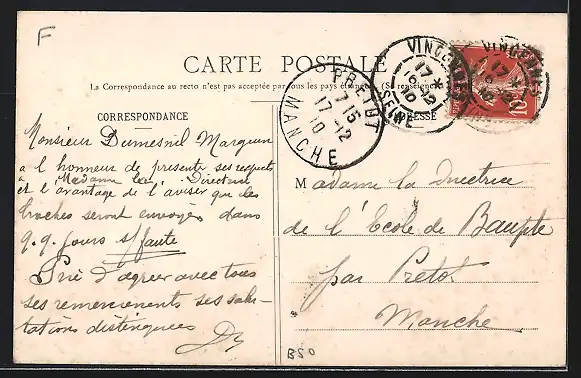 F
CARTE POSTALE
La Correspondance au recto n'est pas acceptée par tous les pays étrangers. (Se renseigner
CORRESPONDANCE
ADRESSE
VINCENNES
17 *
16-12
10
SEINE
VINCENNES
17 *
PRETOT
7 15
17-12
10
MANCHE
10
Monsieur Dumesnil Marquin
a l'honneur de presente ses respects
à Madame la Directrice
et l'avantage de l'aviser que les
broches seront envoyés dans
q.q. jours s/faute
Prié d'agreer avec tous
ses remerciements ses salu-
tations distinguees
Madame la Directrice
de l'Ecole de Baupte
par Pretot
Manche
BSO